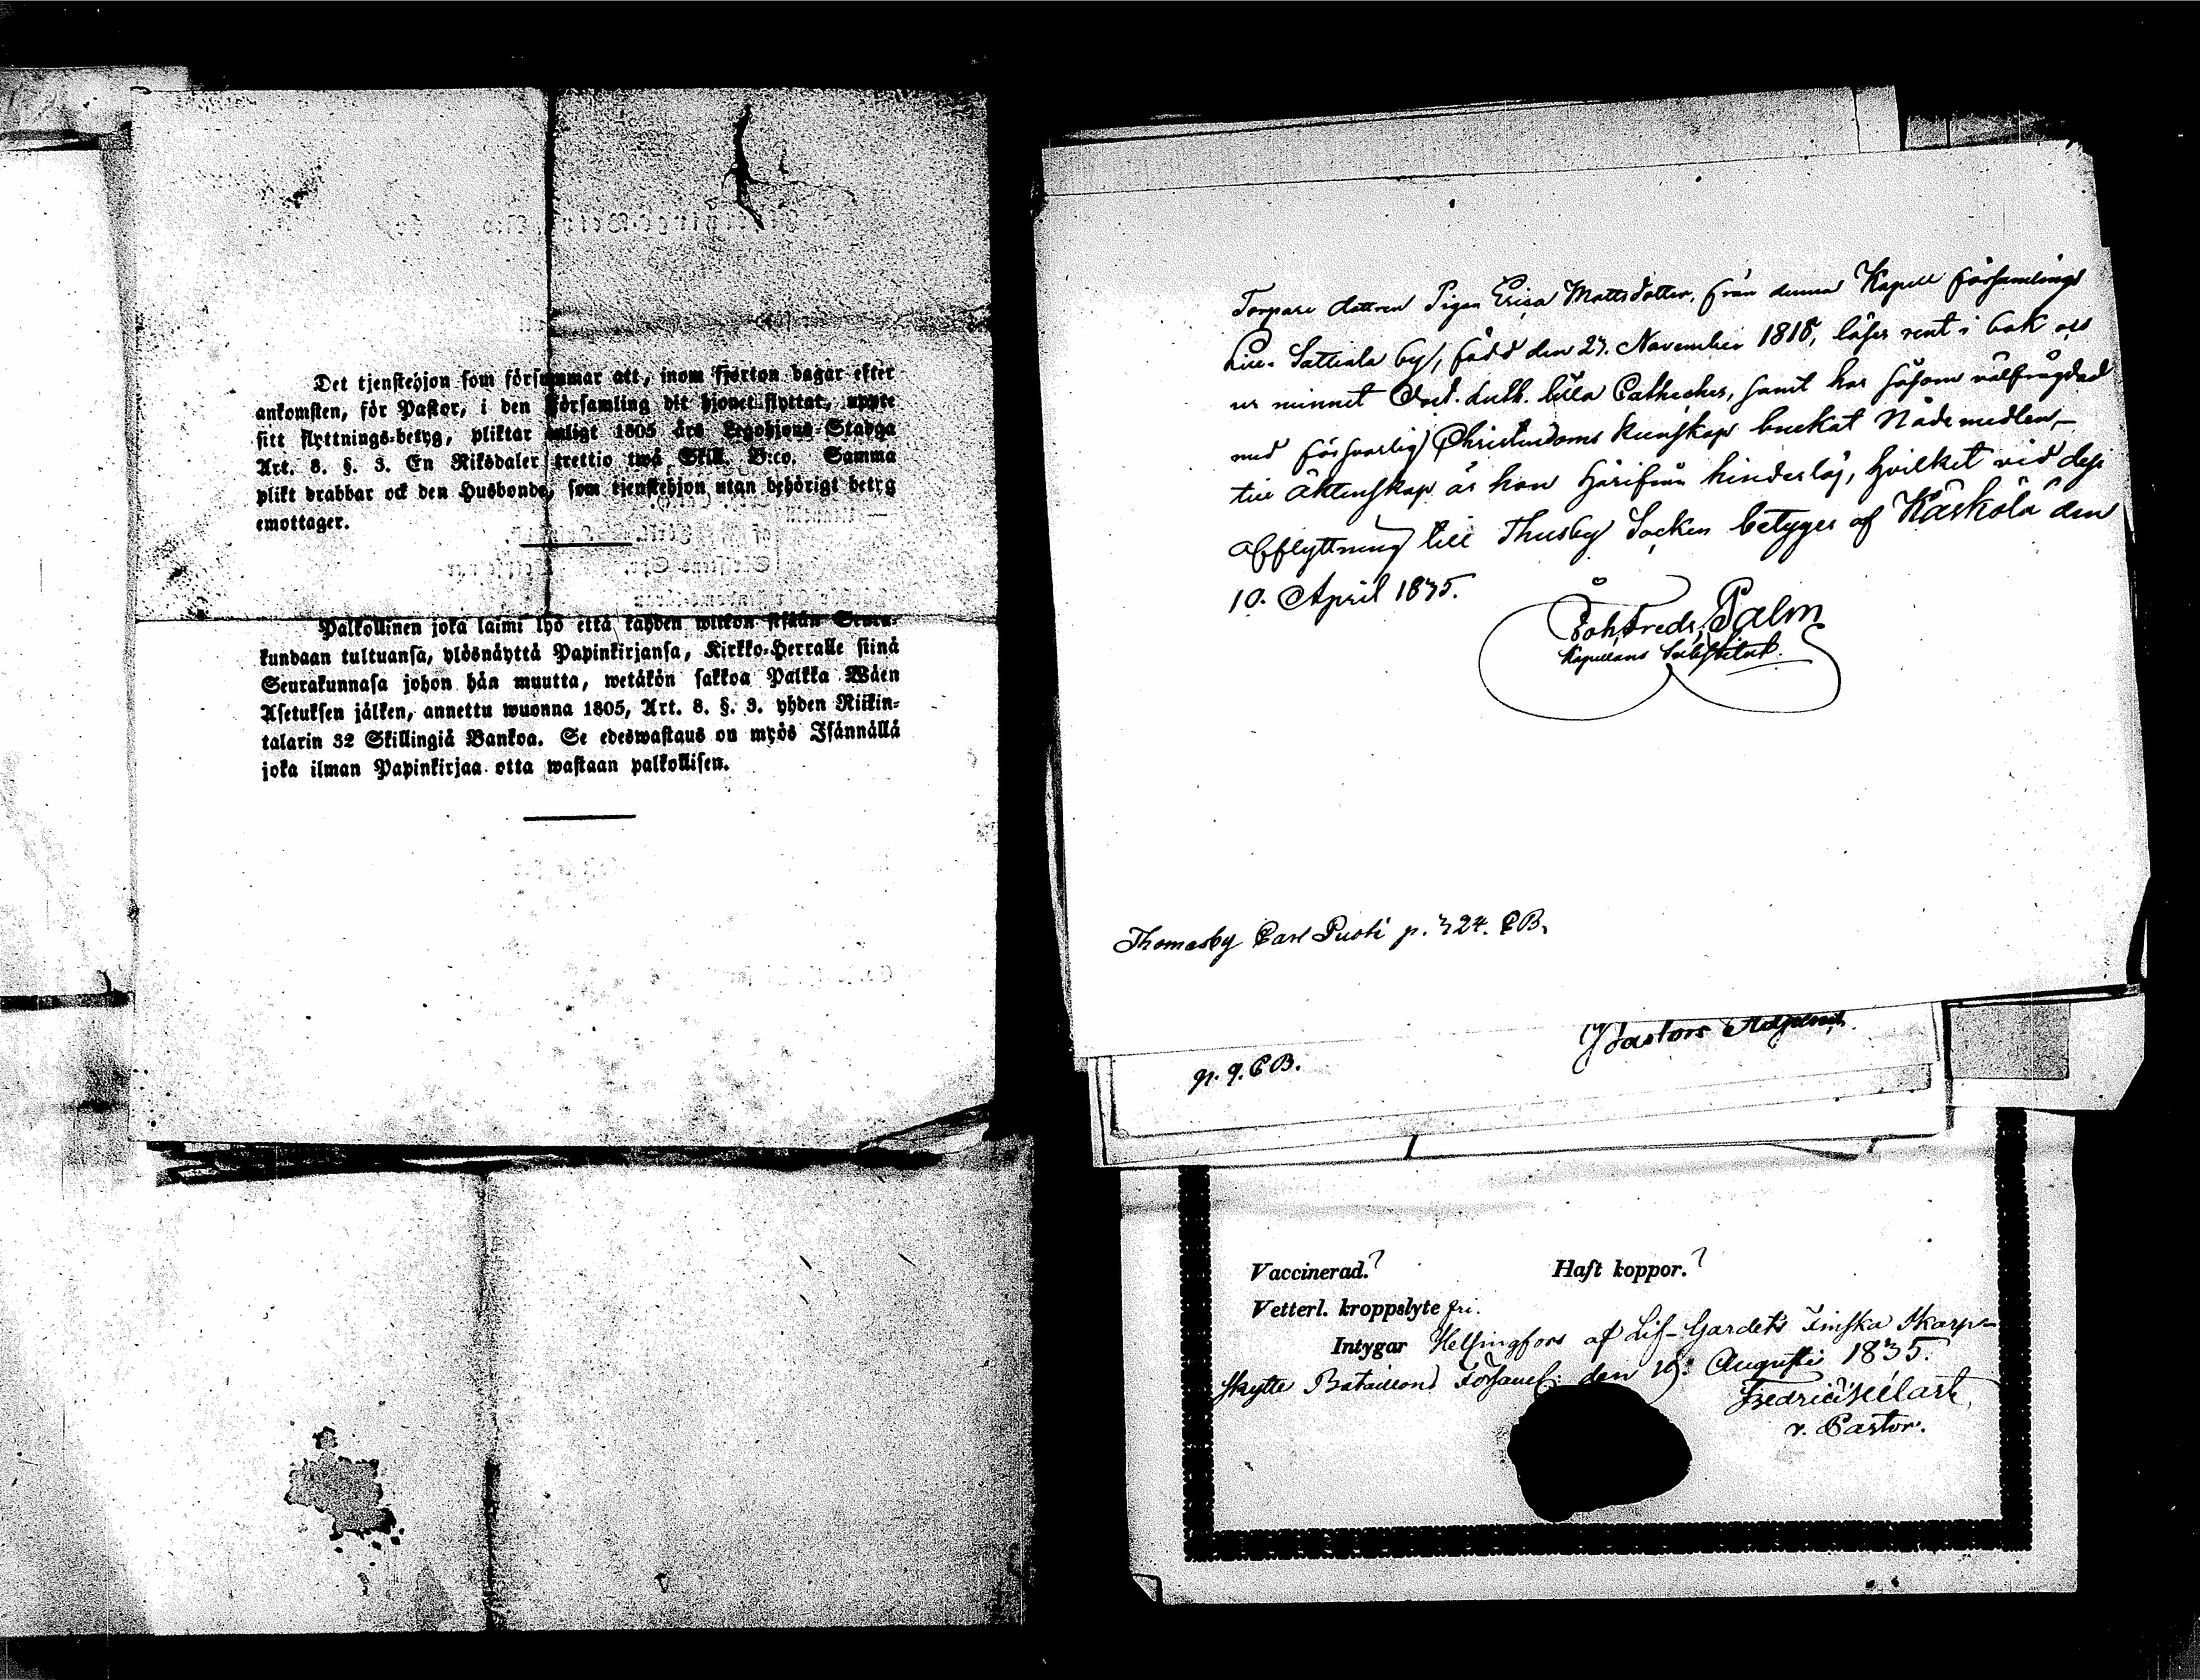 Det tjenstehjon som försummar att, inom fjorton dagar efter
ankomsten, för Pastor, i den församling dit hjonet flyttat, uppte
sitt flyttnings-betyg, pliktar enligt 1805 års Legohjons-Stadga
Art. 8. §. 3. En Riksdaler trettio twå Skill. B:co. Samma
plikt drabbar ock den Husbonde, som tjenstehjon utan behörigt betyg
emottager.
Palkollinen joka laimi lyö että kahden wiikon sisään Seura-
kundaan tultuansa, ylösnäyttä Papinkirjansa, Kirkko-Herralle siinä
Seurakunnasa johon hän muutta, wetäkön sakkoa Palkka Wäen
Asetuksen jälken, annettu wuonna 1805, Art. 8. §. 3. yhden Riikin-
talarin 32 Skillingiä Bankoa. Se edeswastaus on myös Isännällä
joka ilman Papinkirjaa otta wastaan palkollisen.
Torpare dottren Pigan Erica Mattsdotter, från denna Kapell församlings
by, född den 27. November 1818, läser rent i bok och
ur minnet Luth. lilla Catheches, samt har såsom välfrägdad
med försvarlig Christendoms kunskap buckat Nådemedlen,
till Äktenskap är hon härifrån hinderlös, hvilket vid dess
afflyttning till Thusby Socken betyges af Kärkölä den
10. April 1835.
Joh. Fredr. Palm
Kapellans Substitut.
Thomasby Carl Puoti p. 324. CB.
Pastors Adjunct.
p. 9. CB.
Vaccinerad.? Haft koppor.?
Vetterl. kroppslyte fri.
Intygar Helsingfors af Lif-Gardets Finska Skarp-
skytte Bataillons Församl: den Augusti 1835.
Fredric
v. Pastor.